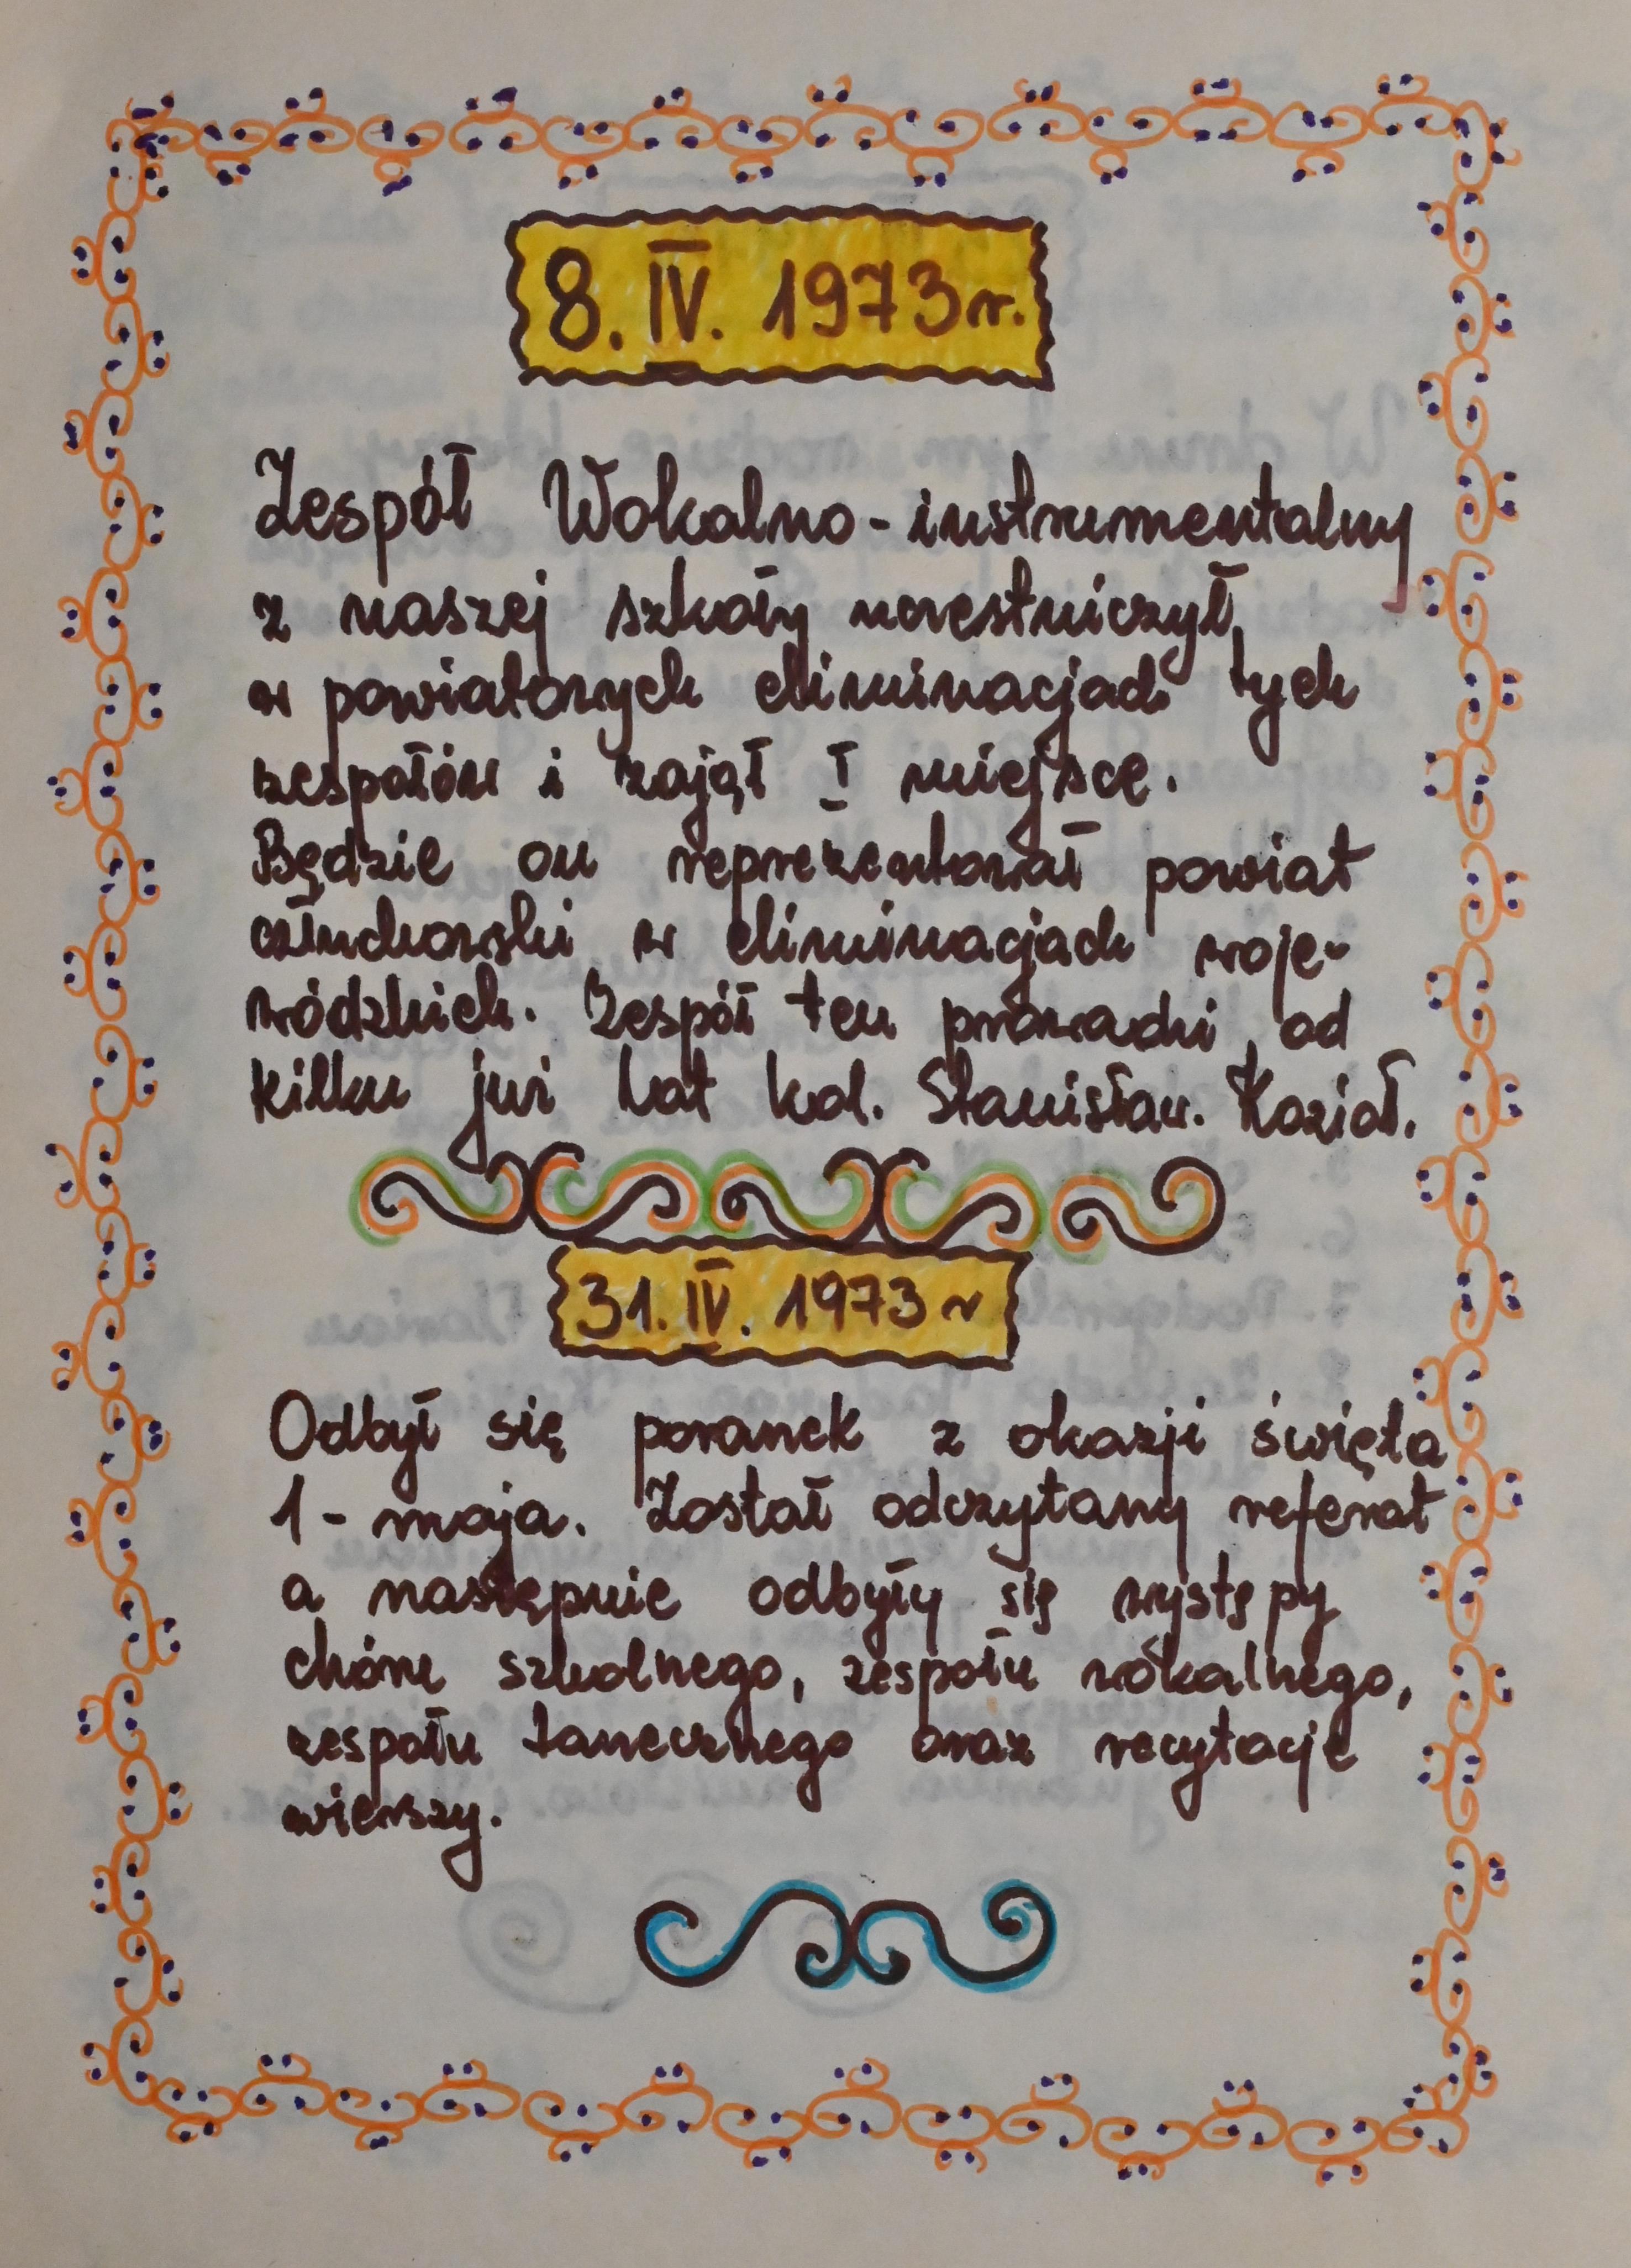 8. IV. 1973 r.
Zespół Wokalno-instrumentalny
z naszej szkoły uczestniczył
w powiatowych eliminacjach tych
zespołów i zajął I miejsce.
Będzie on reprezentował powiat
człuchowski w eliminacjach woje-
wódzkich. Zespół ten prowadzi od
kilku już lat kol. Stanisław. Kozioł.
31. IV. 1973 r
Odbył się poranek z okazji święta
1-maja. Został odczytany referat
a następnie odbyły się występy
chóru szkolnego, zespołu wokalnego,
zespołu tanecznego oraz recytacje
wierszy.